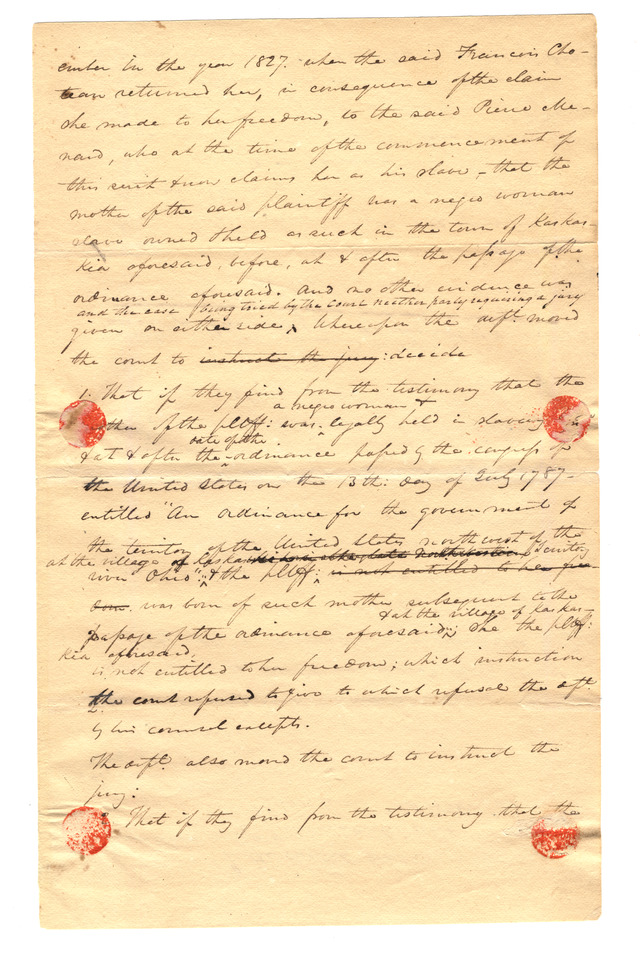 ember in the year 1827. when the said Francois Cho-
teau returned her, in consequence of the claim
she made to her freedom, to the said Pierre Me-
nard, who at the time of the commencement of
this suit & now claims her as his slave - that the
mother of the said plaintiff was a negro woman
slave owned & held as such in the town of Kaskas-
kia aforesaid, before, at & after the passage of the
ordinance aforesaid. and no other evidence was
and the case being tried by the court neither party requiring a jury
given on either side, Whereupon the deft. moved
the court to instruct the jury: decide
1. That if they find from the testimony that the
a negro woman &
of the pltff: was legally held in slavery
date of the
& at & after the ordinance passed by the congress of
the United States on the 13th: day of July 1787-
entitled "An ordinance for the government of
the territory of the United States northwest of the
at the village of Kaskas Territory
river Ohio" & the pltff: is not entitled to her free-
dom was born of such mother subsequent to the
& at the village of Kaskas-
passage of the ordinance aforesaid, She the pltff:
kia aforesaid,
is not entitled to her freedom; which instruction
the court refused to give to which refusal the deft.
by his counsel excepts.
2.
The deft. also moved the court to instruct the
jury:
That if they find from the testimony that the